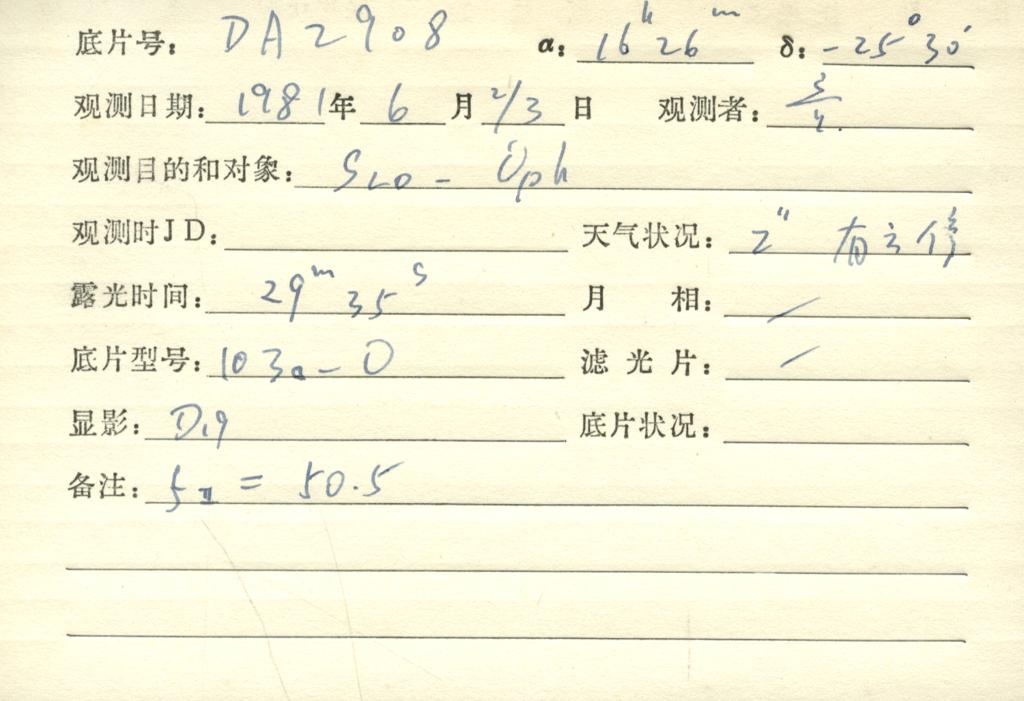 底片号: DA2908 α: 16h 26m δ: -25° 30′
观测日期: 1981年 6 月 2/3 日 观测者: 3/4
观测目的和对象: Sco - Oph
观测时JD: 天气状况: 2" 有云停
露光时间: 29m 35s 月 相: /
底片型号: 103a-O 滤光片: /
显影: D19 底片状况:
备注: = 50.5